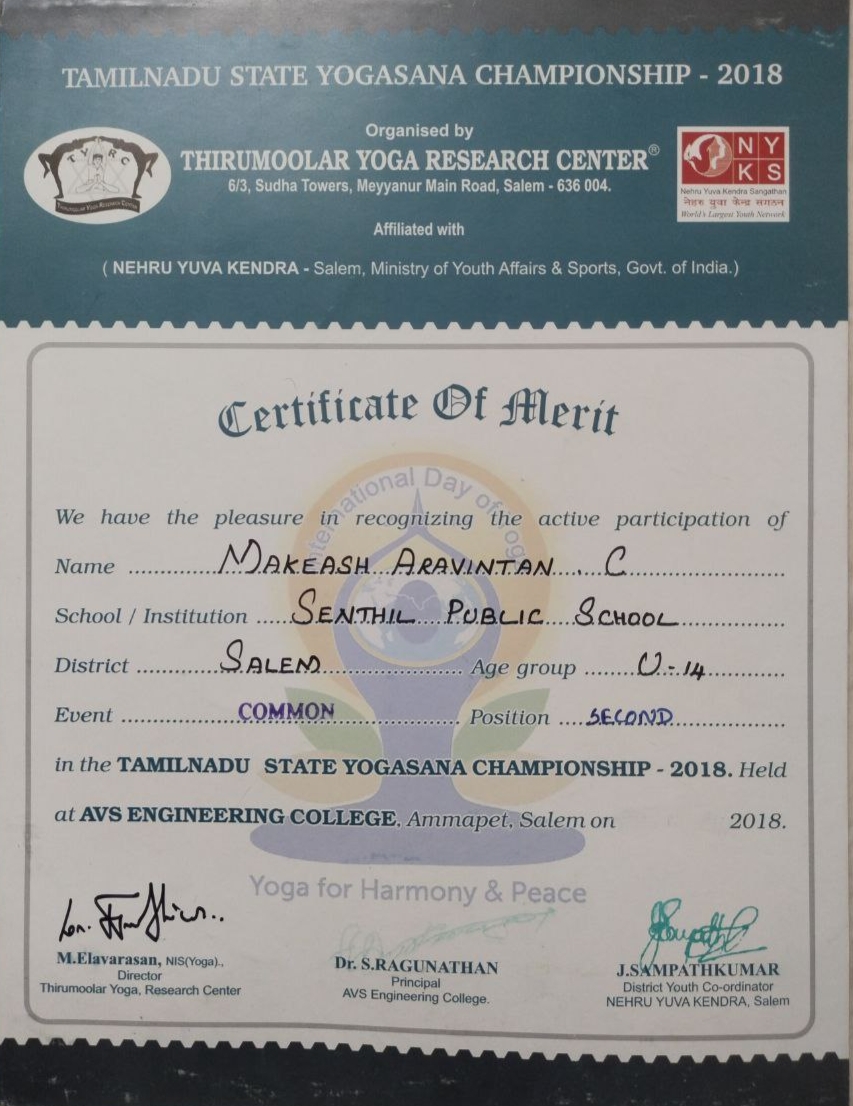 TAMILNADU STATE YOGASANA CHAMPIONSHIP - 2018
Organised by
TYRC
THIRUMOOLAR YOGA RESEARCH CENTER
THIRUMOOLAR YOGA RESEARCH CENTER®
6/3, Sudha Towers, Meyyanur Main Road, Salem - 636 004.
NY
KS
Nehru Yuva Kendra Sangathan
नेहरू युवा केन्द्र संगठन
World's Largest Youth Network
Affiliated with
( NEHRU YUVA KENDRA - Salem, Ministry of Youth Affairs & Sports, Govt. of India.)
Certificate Of Merit
International Day of Yoga
We have the pleasure in recognizing the active participation of
Name MAKEASH ARAVINTAN . C
School / Institution SENTHIL PUBLIC SCHOOL
District SALEM Age group U-14
Event COMMON Position SECOND
in the TAMILNADU STATE YOGASANA CHAMPIONSHIP - 2018. Held
at AVS ENGINEERING COLLEGE, Ammapet, Salem on 2018.
Yoga for Harmony & Peace
M.Elavarasan, NIS(Yoga).,
Director
Thirumoolar Yoga, Research Center
Dr. S.RAGUNATHAN
Principal
AVS Engineering College.
J.SAMPATHKUMAR
District Youth Co-ordinator
NEHRU YUVA KENDRA, Salem